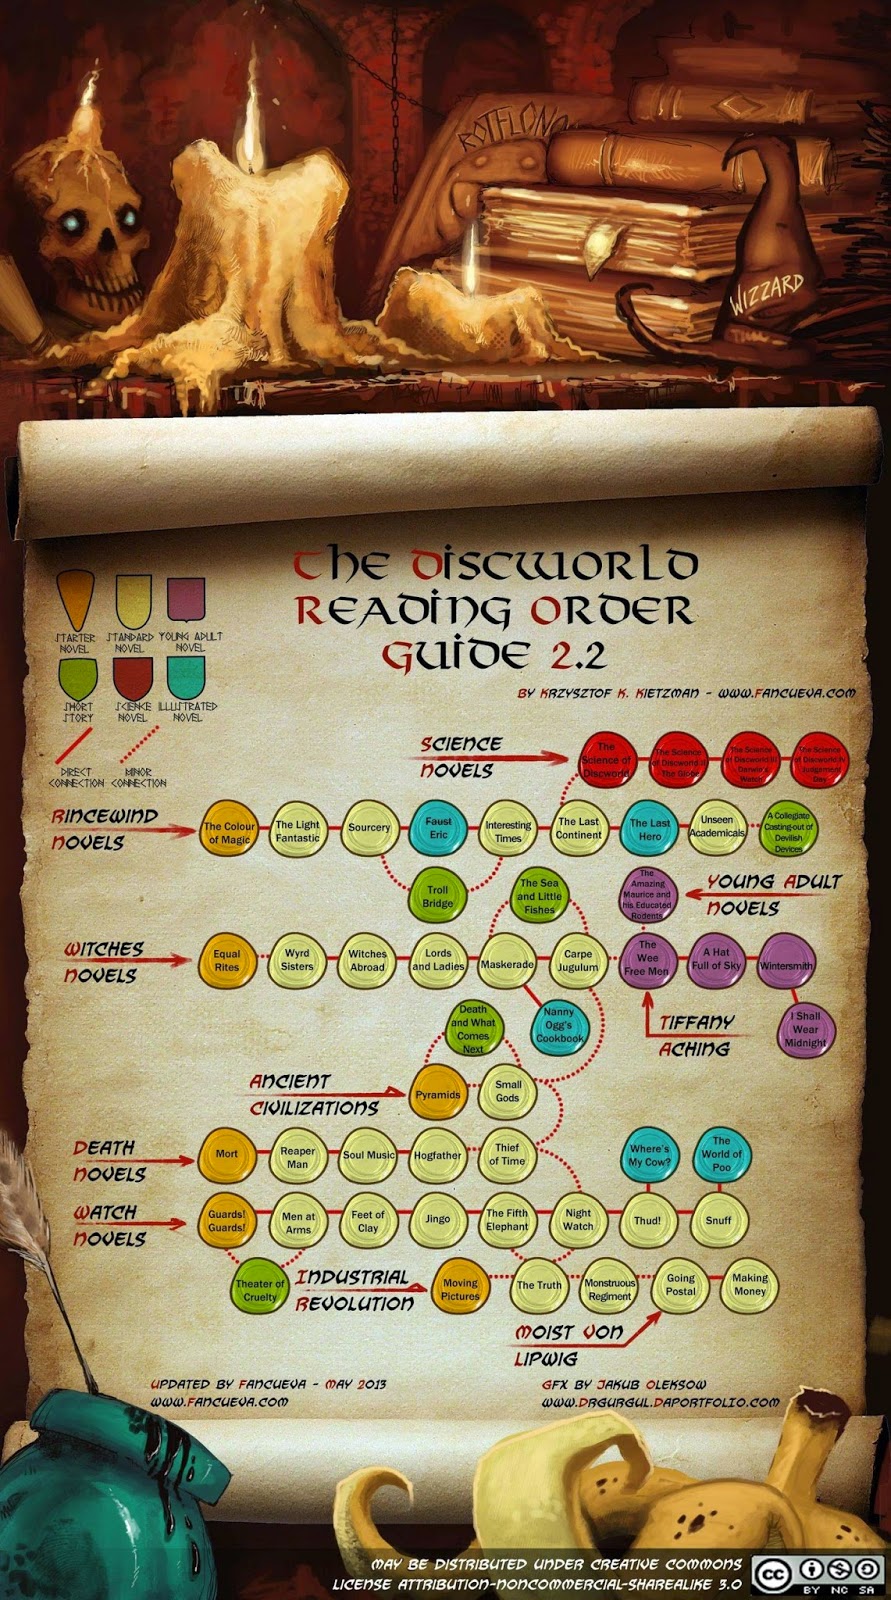 ROTFLONG
WIZZARD
The Discworld
Reading Order
Guide 2.2
By Krzysztof K. Kietzman - www.Fancueva.com
Starter
Novel
Standard
Novel
Young Adult
Novel
Short
Story
Science
Novel
Illustrated
Novel
Direct
Connection
Minor
Connection
Science
Novels
The
Science of
Discworld
The Science
of Discworld II
- The Globe
The Science
of Discworld III
Darwin's
Watch
The Science
of Discworld IV
Judgement
Day
Rincewind
Novels
The Colour
of Magic
The Light
Fantastic
Sourcery
Faust
Eric
Interesting
Times
The Last
Continent
The Last
Hero
Unseen
Academicals
A Collegiate
Casting-out of
Devilish
Devices
Troll
Bridge
The Sea
and Little
Fishes
The
Amazing
Maurice and
his Educated
Rodents
Young Adult
Novels
Witches
Novels
Equal
Rites
Wyrd
Sisters
Witches
Abroad
Lords
and Ladies
Maskerade
Carpe
Jugulum
The
Wee
Free Men
A Hat
Full of Sky
Wintersmith
Death
and What
Comes
Next
Nanny
Ogg's
Cookbook
Tiffany
Aching
I Shall
Wear
Midnight
Ancient
Civilizations
Pyramids
Small
Gods
Death
Novels
Mort
Reaper
Man
Soul Music
Hogfather
Thief
of Time
Where's
My Cow?
The
World of
Poo
Watch
Novels
Guards!
Guards!
Men at
Arms
Feet of
Clay
Jingo
The Fifth
Elephant
Night
Watch
Thud!
Snuff
Theater of
Cruelty
Industrial
Revolution
Moving
Pictures
The Truth
Monstruous
Regiment
Going
Postal
Making
Money
Moist Von
Lipwig
Updated by Fancueva - May 2013
www.Fancueva.com
Gfx by Jakub Oleksow
www.Drgurgul.Daportfolio.com
May be distributed under Creative Commons
License Attribution-NonCommercial-ShareAlike 3.0
cc
BY NC SA